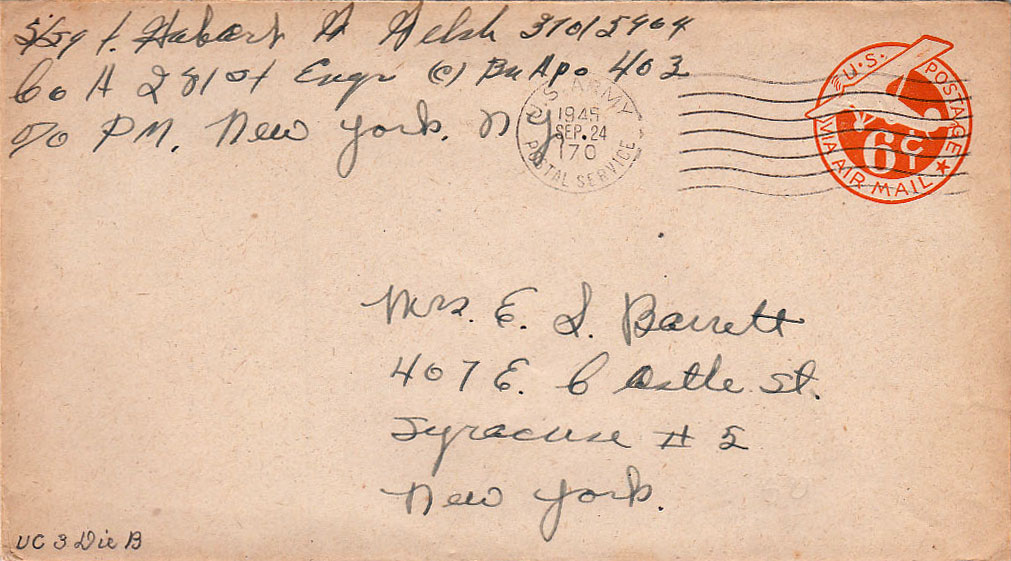 S/Sgt. Hubert H Welsh 37015904
Co A 281st Engr (C) Bn Apo 403
c/o PM, New York, N.Y.
U.S. ARMY
1945
SEP. 24
170
POSTAL SERVICE
U.S. POSTAGE
6 CT
VIA AIR MAIL
Mrs. E. S. Barrett
407 E. Castle St.
Syracuse # 5
New York.
UC 3 Die B